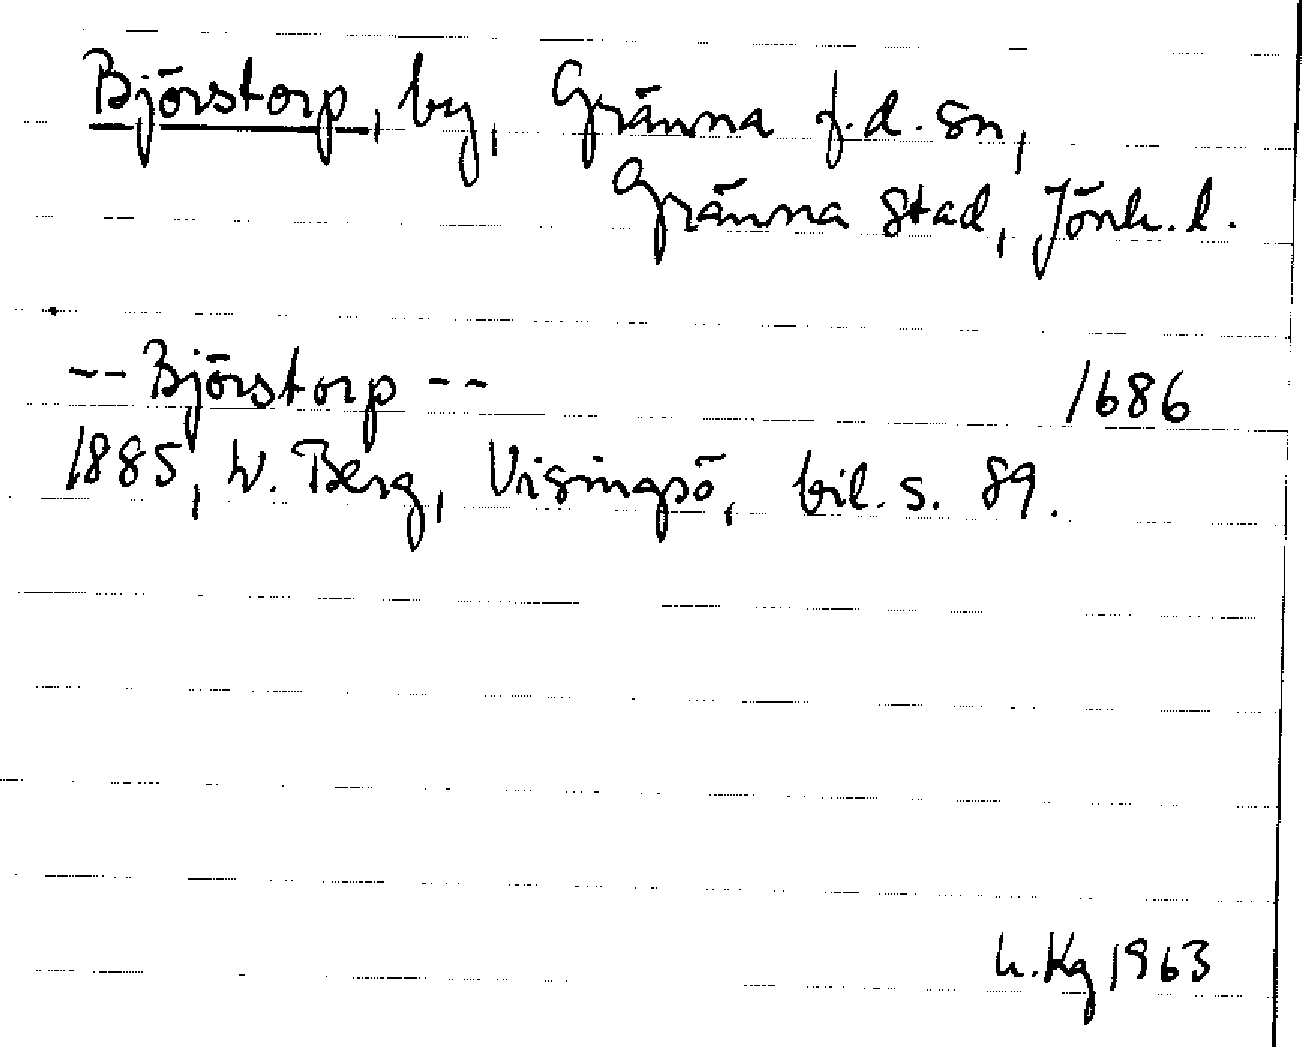 Björstorp, by, Gränna f.d. sn,
Gränna stad, Jönk. l.
-- Björstorp -- 1686
1885, W. Berg, Visingsö, bil. s. 89.
h. Kg 1963